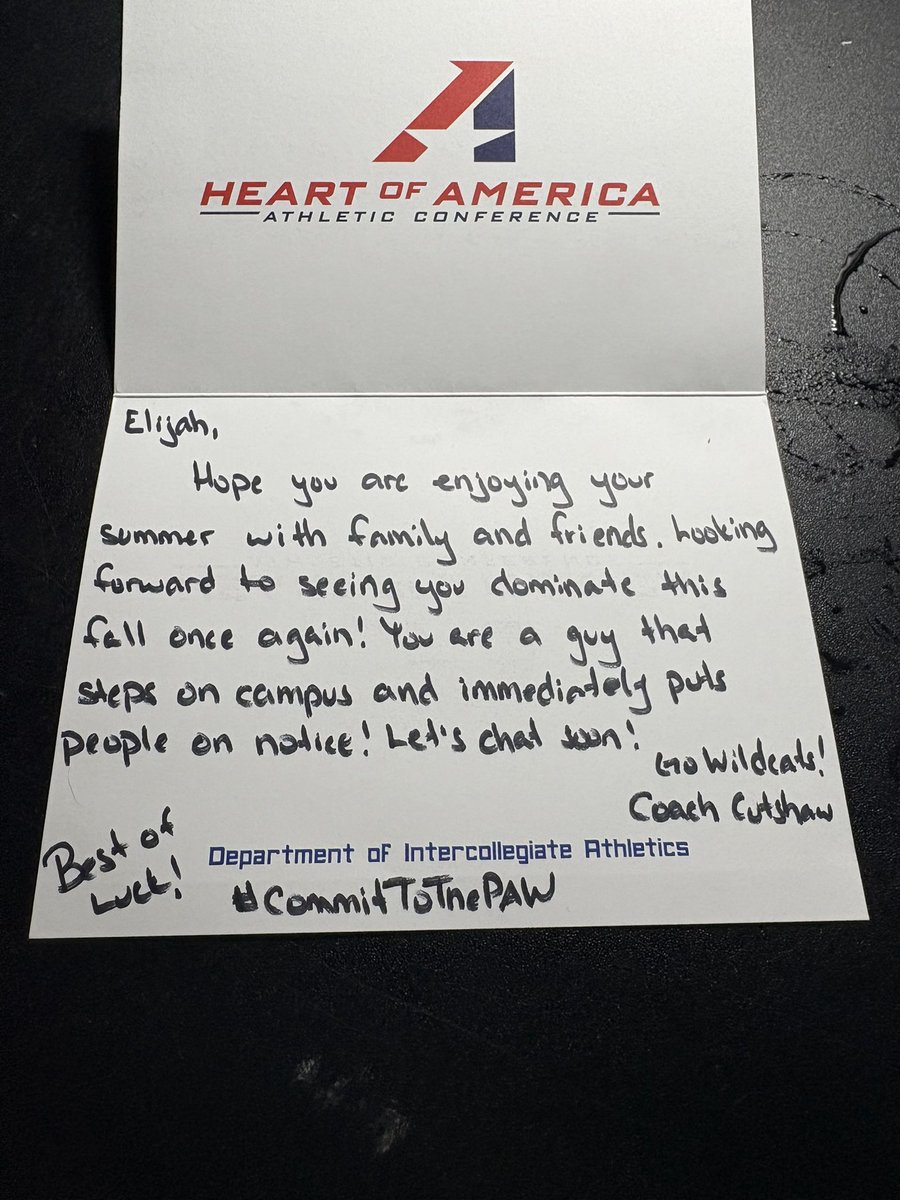 HEART OF AMERICA
ATHLETIC CONFERENCE
Elijah,
Hope you are enjoying your
summer with family and friends. Looking
forward to seeing you dominate this
fall once again! You are a guy that
steps on campus and immediately puts
people on notice! Let's chat soon!
Go Wildcats!
Coach Cutshaw
Best of
Luck!
Department of Intercollegiate Athletics
#CommitToThePAW